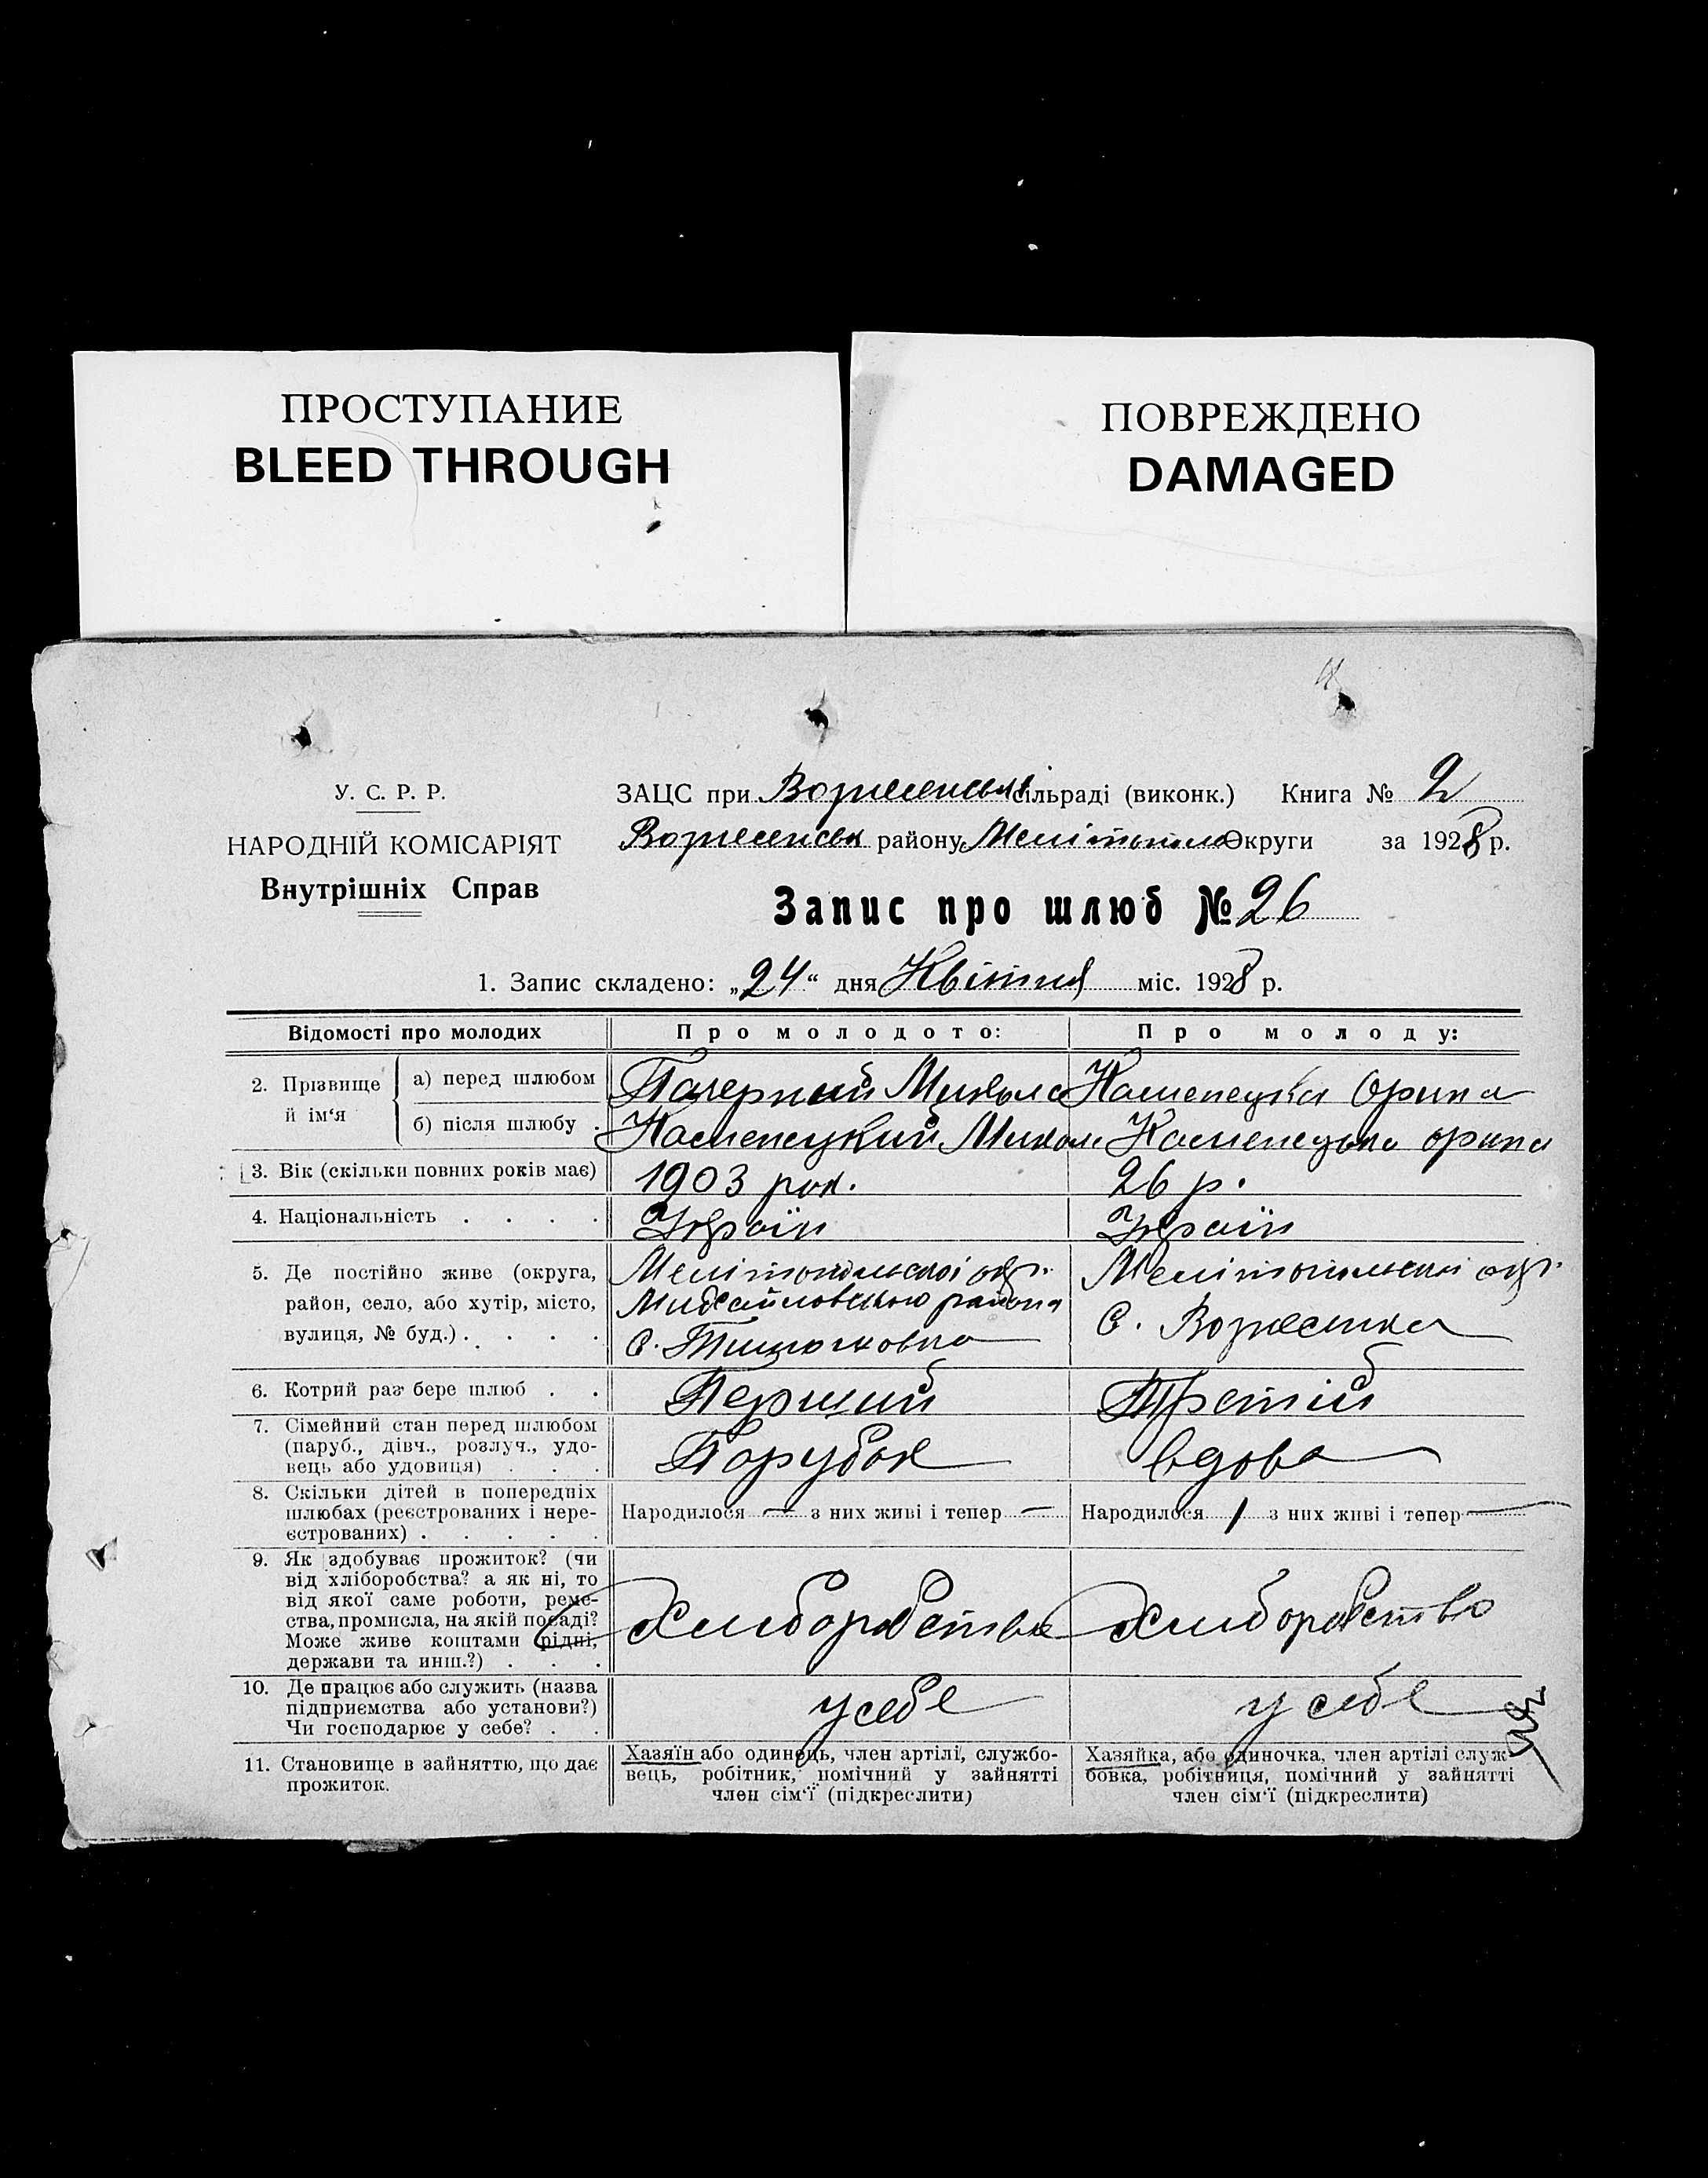 ПРОСТУПАНИЕ
BLEED THROUGH
ПОВРЕЖДЕНО
DAMAGED
У. С. Р. Р.
НАРОДНІЙ КОМІСАРІЯТ
Внутрішніх Справ
ЗАЦС при Вознесенській сільраді (виконк.) Книга № 2
Вознесенськ району Мелітопол Округи за 1928 р.
Запис про шлюб № 26
1. Запис складено: „24“ дня Квітня міс. 1928 р.
Відомості про молодих
Про молодого:
Про молоду:
2. Прізвище й ім‘я
а) перед шлюбом
Микола
Каменецька Орина
б) після шлюбу .
Каменецкий Микола
Каменецька орина
3. Вік (скільки повних років має)
1903 рок.
26 р.
4. Національність . . . .
Україн
Україн
5. Де постійно живе (округа,
район, село, або хутір, місто,
вулиця, № буд.) . . . .
Мелітопольскоі окр.
Михайловського района
с. Тимошовка
Мелітопольскоі окр.
с. Вознесенка
6. Котрий раз бере шлюб . .
Перший
Третій
7. Сімейний стан перед шлюбом
(паруб., дівч., розлуч., удо-
вець або удовиця) . . .
Парубок
вдова
8. Скільки дітей в попередніх
шлюбах (реєстрованих і нере-
єстрованих) . . . . .
Народилося — з них живі і тепер —
Народилося 1 з них живі і тепер —
9. Як здобуває прожиток? (чи
від хліборобства? а як ні, то
від якої саме роботи, реме-
ства, промисла, на якій посаді?
Може живе коштами рідні,
держави та инш.?) . . .
Хлиборобство
Хлиборобство
10. Де працює або служить (назва
підприємства або установи?)
Чи господарює у себе? . .
у себе
у себе
11. Становище в зайняттю, що дає
прожиток.
Хазяїн або одинець, член артілі, службо-
вець, робітник, помічний у зайнятті
член сім‘ї (підкреслити)
Хазяйка, або одиночка, член артілі служ-
бовка, робітниця, помічний у зайнятті
член сім‘ї (підкреслити)